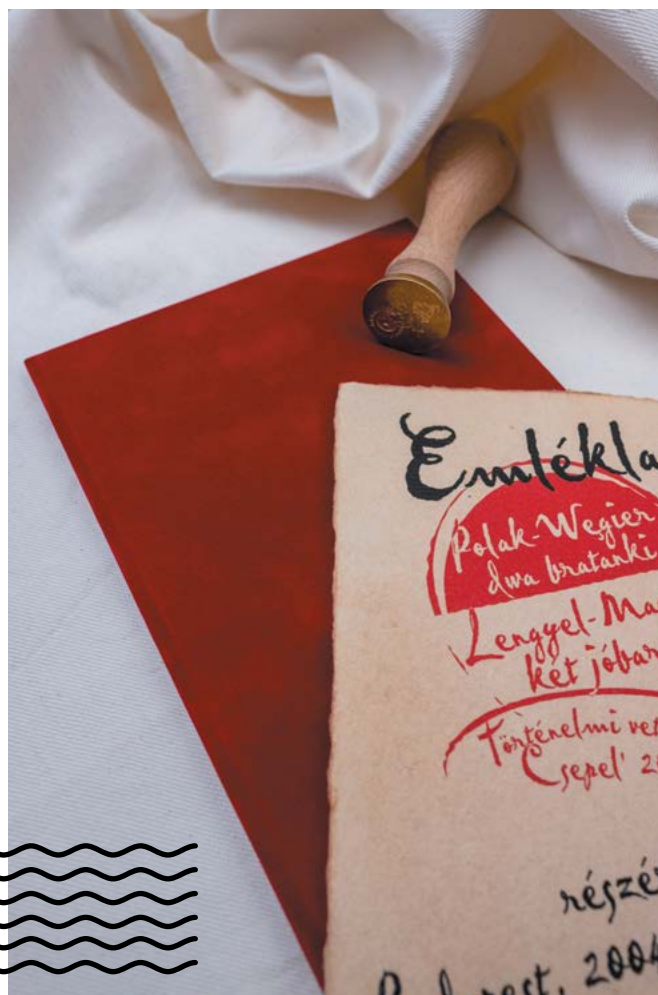 Emlékla
Polak-Węgier
dwa bratanki
Lengyel-Ma
két jóbar
Történelmi vet
Csepel' 20
részé
Budapest, 2004